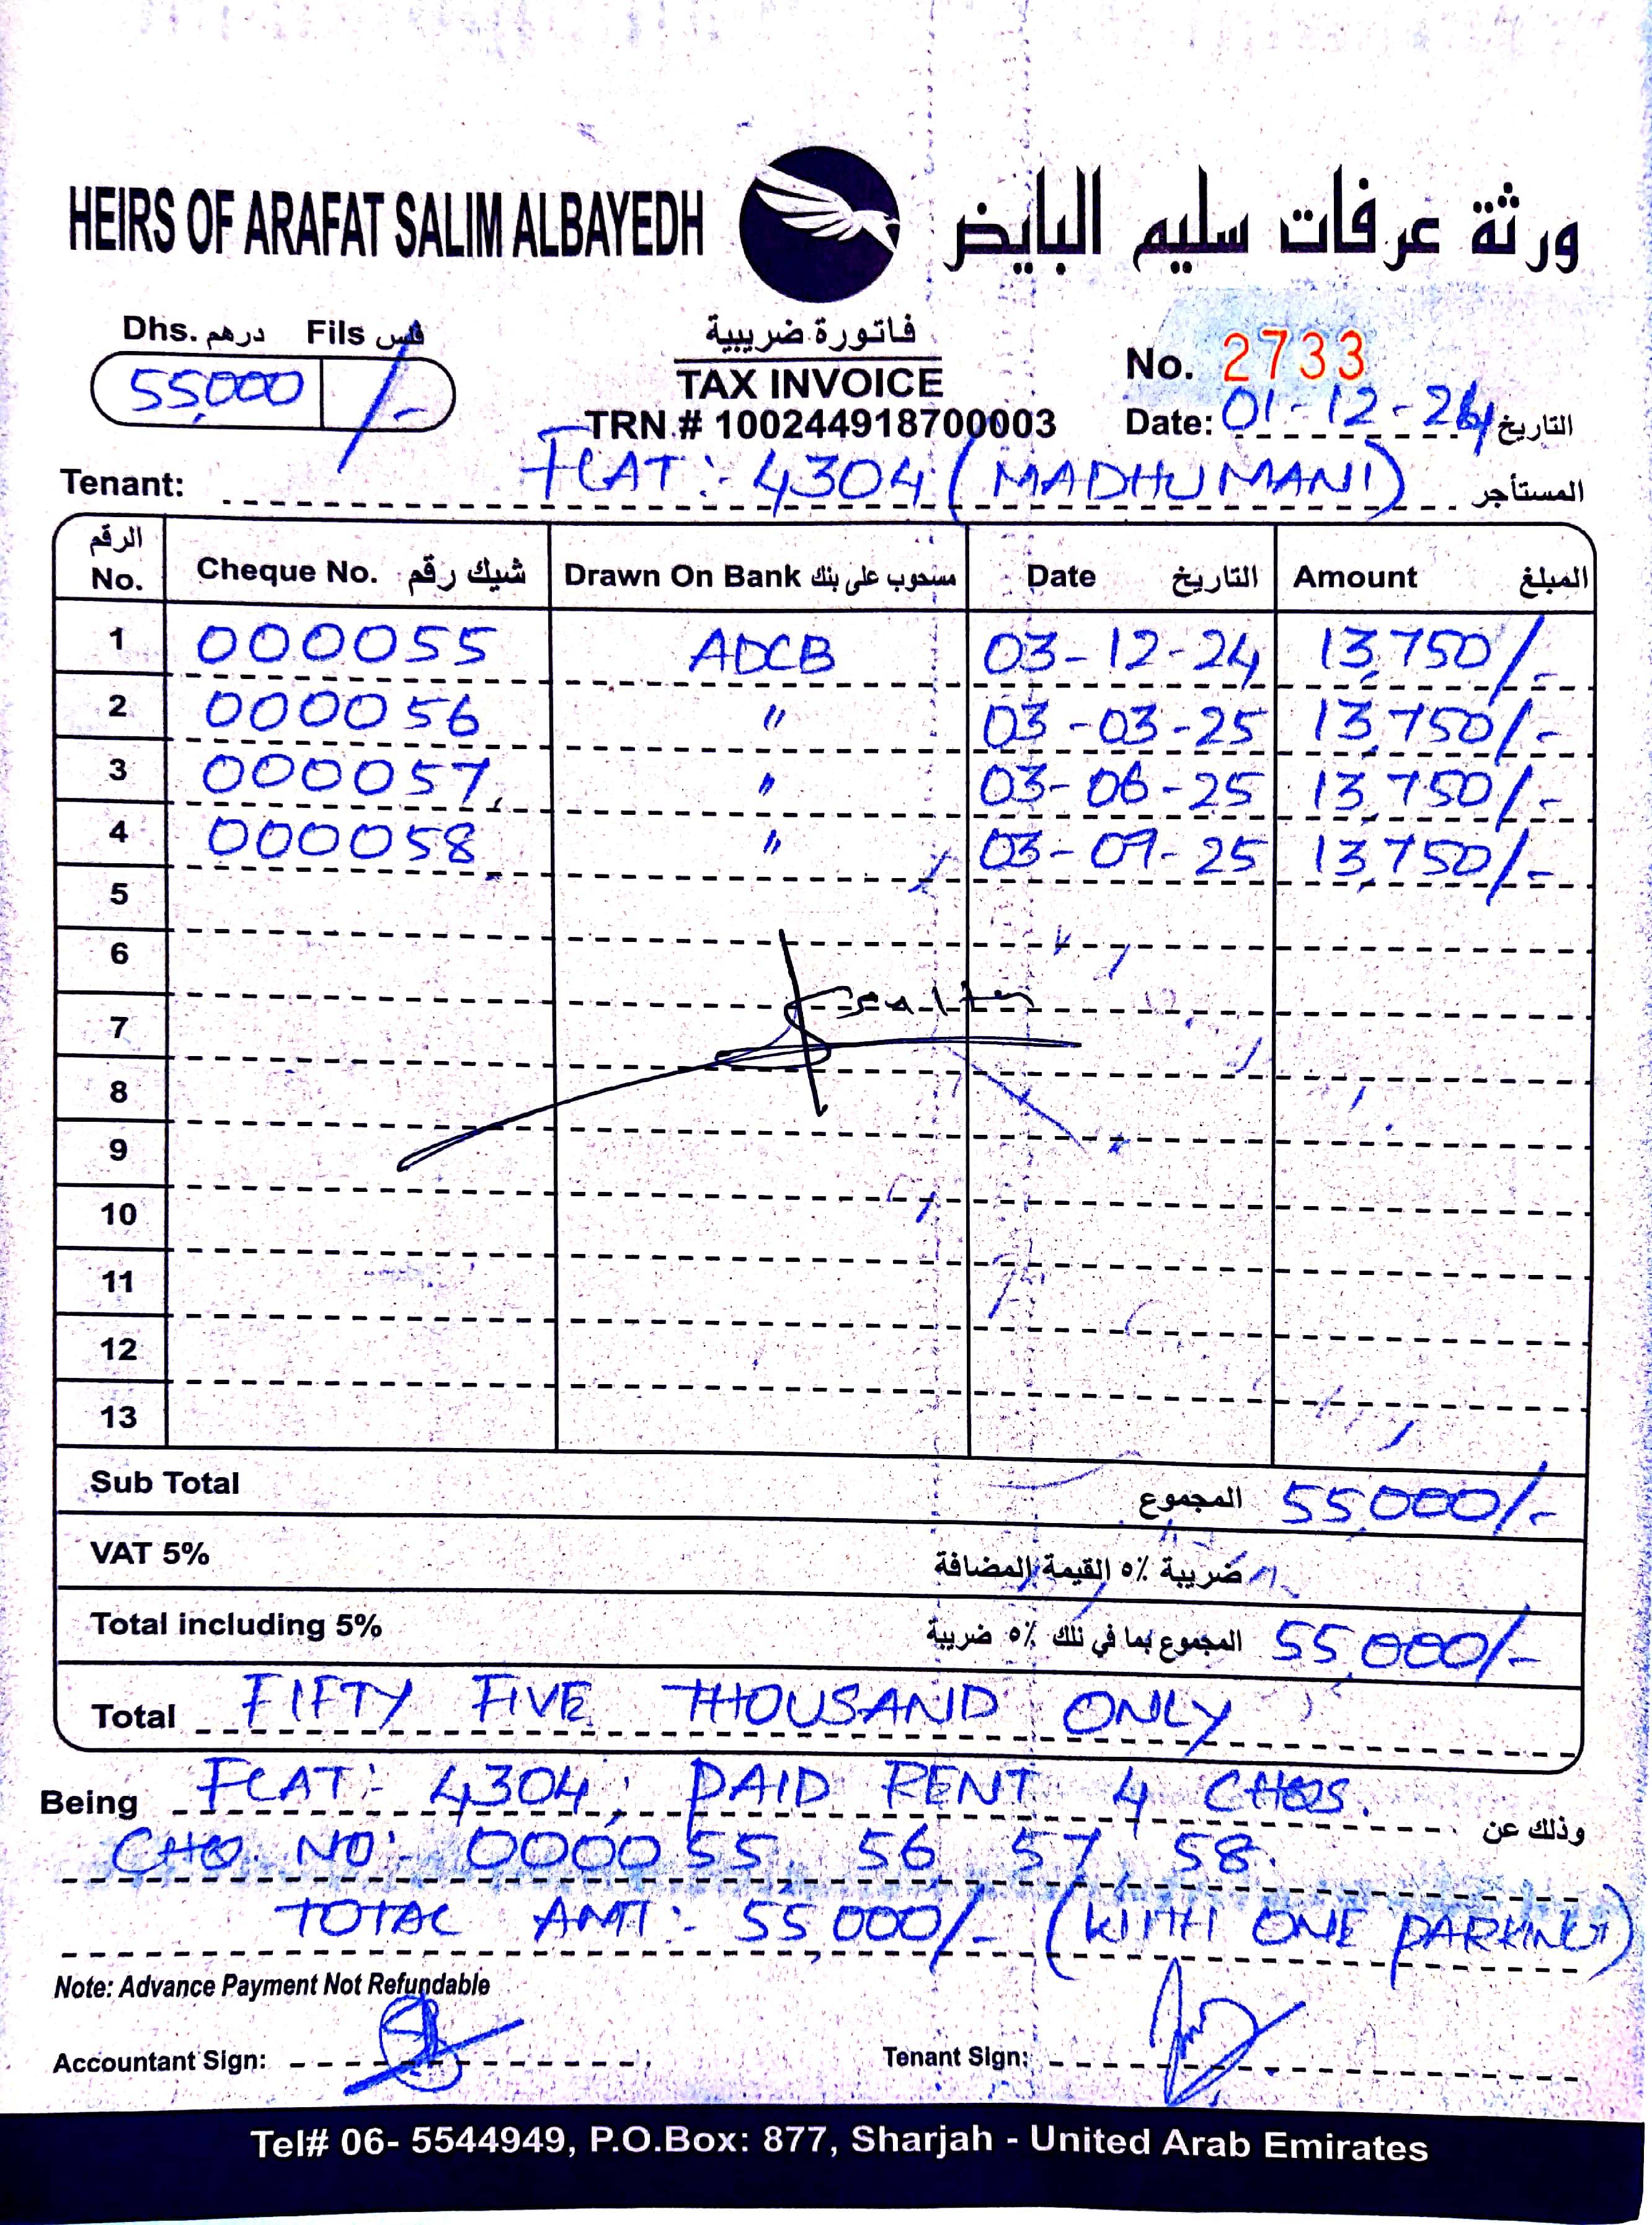 HEIRS OF ARAFAT SALIM ALBAYEDH ورثة عرفات سليم البايض
Dhs. درهم Fils فلس
55,000 /-
فاتورة ضريبية
TAX INVOICE
TRN # 100244918700003
No. 2733
Date: 01-12-24 التاريخ
Tenant: FLAT:- 4304 (MADHUMANI) المستأجر
الرقم No. Cheque No. شيك رقم Drawn On Bank مسحوب على بنك Date التاريخ Amount المبلغ
1 000055 ADCB 03-12-24 13,750/-
2 000056 " 03-03-25 13,750/-
3 000057 " 03-06-25 13,750/-
4 000058 " 03-09-25 13,750/-
5
6
7
8
9
10
11
12
13
Sub Total المجموع 55,000/-
VAT 5% ضريبة ٥٪ القيمة المضافة
Total including 5% المجموع بما في ذلك ٥٪ ضريبة 55,000/-
Total FIFTY FIVE THOUSAND ONLY
Being FLAT:- 4304, PAID RENT 4 CHQS. وذلك عن
CHQ. NO:- 000055, 56, 57, 58.
TOTAL AMT:- 55,000/- (WITH ONE PARKING)
Note: Advance Payment Not Refundable
Accountant Sign: Tenant Sign:
Tel# 06- 5544949, P.O.Box: 877, Sharjah - United Arab Emirates